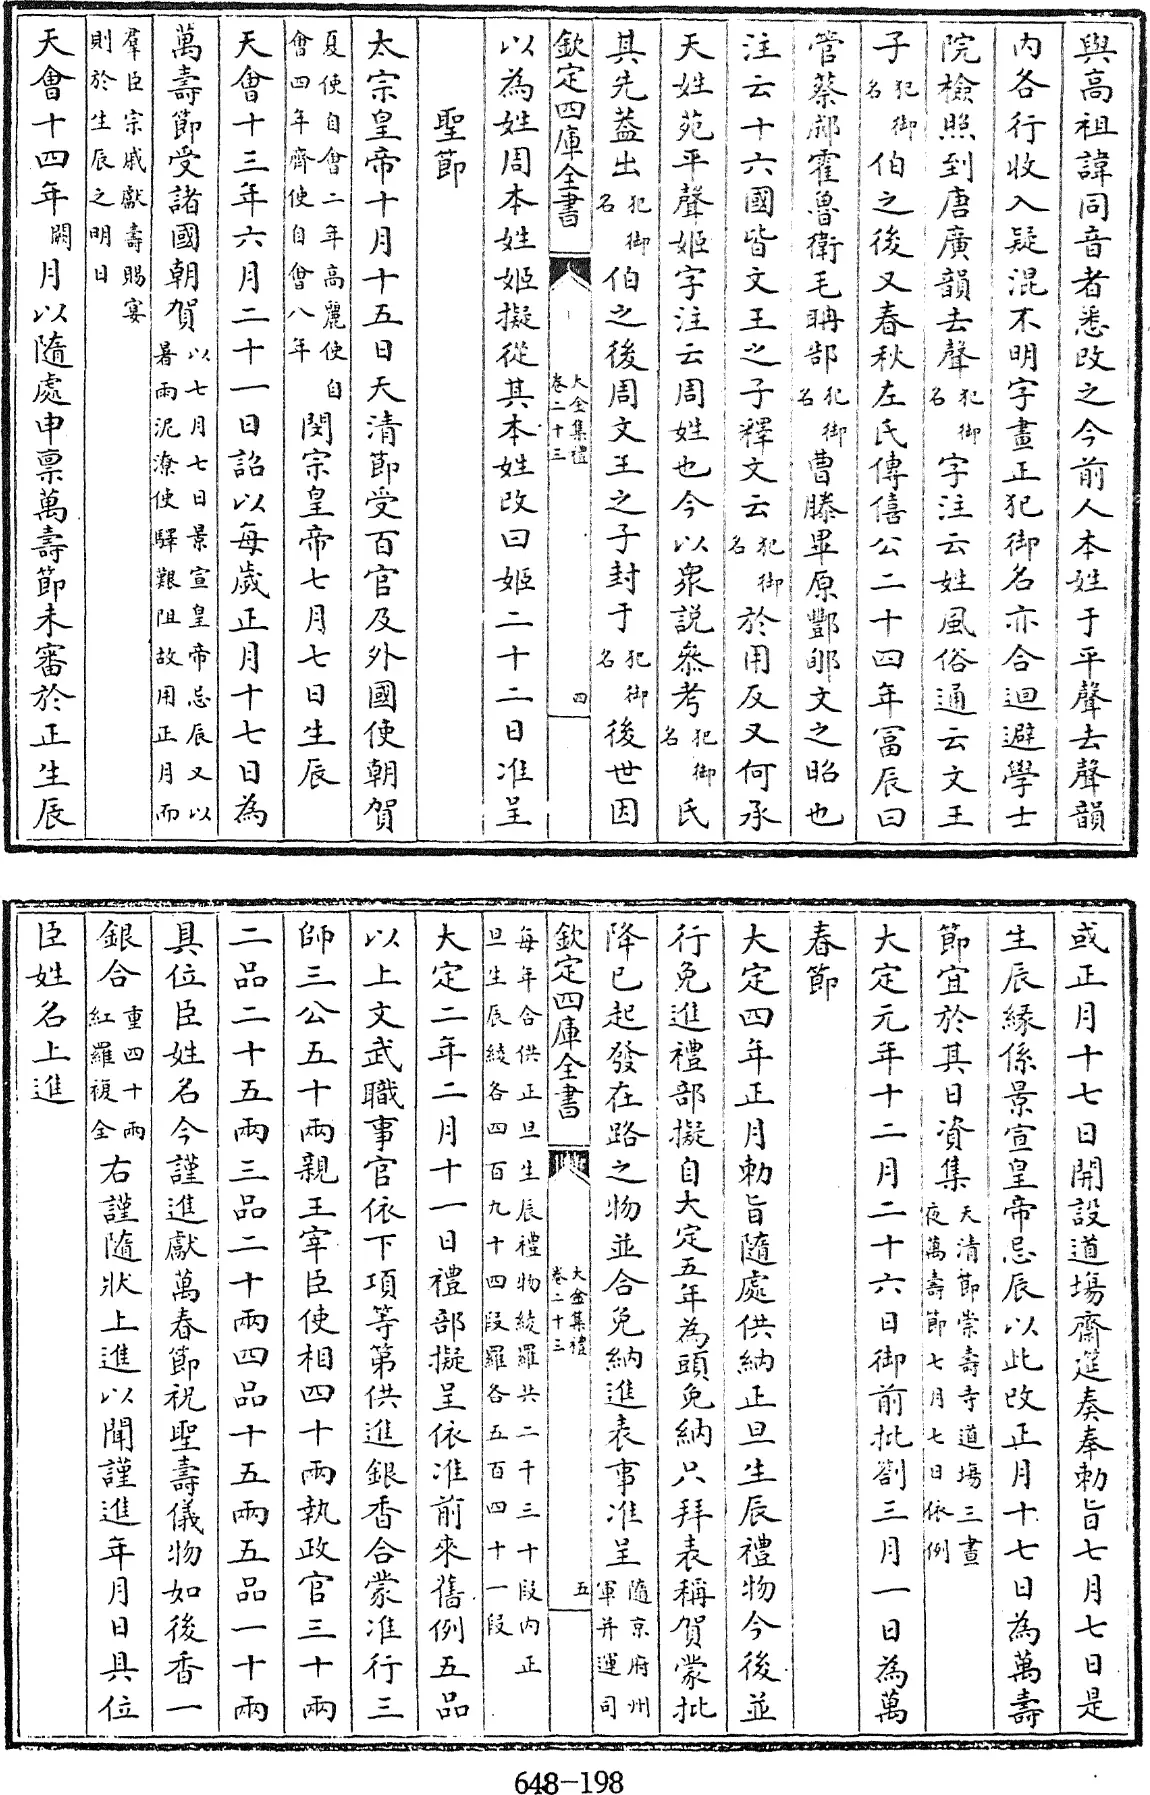 與高祖諱同音者悉改之今前人本姓于平聲去聲韻
內各行收入疑混不明字畫正犯御名亦合迴避學士
院檢照到唐廣韻去聲犯御名字注云姓風俗通云文王
子犯御名伯之後又春秋左氏傳僖公二十四年富辰曰
管蔡郕霍魯衛毛聃郜犯御名曹滕畢原酆郇文之昭也
注云十六國皆文王之子釋文云犯御名於用反又何承
天姓苑平聲姬字注云周姓也今以衆説叅考犯御名氏
其先葢出犯御名伯之後周文王之子封于犯御名後世因
欽定四庫全書 大金集禮卷二十三 四
以為姓周本姓姬擬從其本姓改曰姬二十二日准呈
聖節
太宗皇帝十月十五日天清節受百官及外國使朝賀
夏使自會二年高麗使自會四年齊使自會八年閔宗皇帝七月七日生辰
天會十三年六月二十一日詔以每歲正月十七日為
萬壽節受諸國朝賀以七月七日景宣皇帝忌辰又以暑雨泥潦使驛艱阻故用正月而
羣臣宗戚獻壽賜宴則於生辰之明日
天會十四年闕月以隨處申禀萬壽節未審於正生辰
或正月十七日開設道場齋筵奏奉勅旨七月七日是
生辰緣係景宣皇帝忌辰以此改正月十七日為萬壽
節宜於其日資集天清節崇壽寺道場三晝夜萬壽節七月七日依例
大定元年十二月二十六日御前批劄三月一日為萬
春節
大定四年正月勅旨隨處供納正旦生辰禮物今後並
行免進禮部擬自大定五年為頭免納只拜表稱賀蒙批
降已起發在路之物並合免納進表事准呈隨京府州軍并運司
欽定四庫全書 大金集禮卷二十三 五
每年合供正旦生辰禮物綾羅共二千三十段内正旦生辰綾各四百九十四段羅各五百四十一段
大定二年二月十一日禮部擬呈依准前來舊例五品
以上文武職事官依下項等第供進銀香合蒙准行三
師三公五十兩親王宰臣使相四十兩執政官三十兩
二品二十五兩三品二十兩四品十五兩五品一十兩
具位臣姓名今謹進獻萬春節祝聖壽儀物如後香一
銀合重四十兩紅羅複全右謹隨狀上進以聞謹進年月日具位
臣姓名上進
648-198